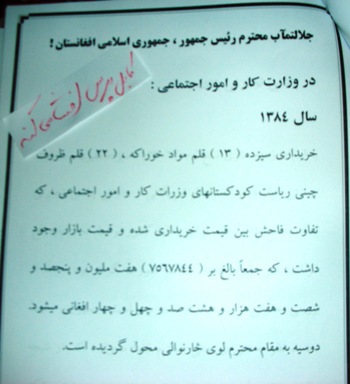 جلالتمآب محترم رئیس جمهور ، جمهوری اسلامی افغانستان !
در وزارت کار و امور اجتماعی :
سال ۱۳۸٤
کابل پرس افشا می کند
خریداری سیزده ( ۱۳ ) قلم مواد خوراکه ، ( ۲۲ ) قلم ظروف
چینی ریاست کودکستانهای وزرات کار و امور اجتماعی ، که
تفاوت فاحش بین قیمت خریداری شده و قیمت بازار وجود
داشت ، که جمعاً بالغ بر ( ۷۵٦۷۸٤٤ ) هفت ملیون و پنجصد و
شصت و هفت هزار و هشت صد و چهل و چهار افغانی میشود.
دوسیه به مقام محترم لوی څارنوالی محول گردیده است.